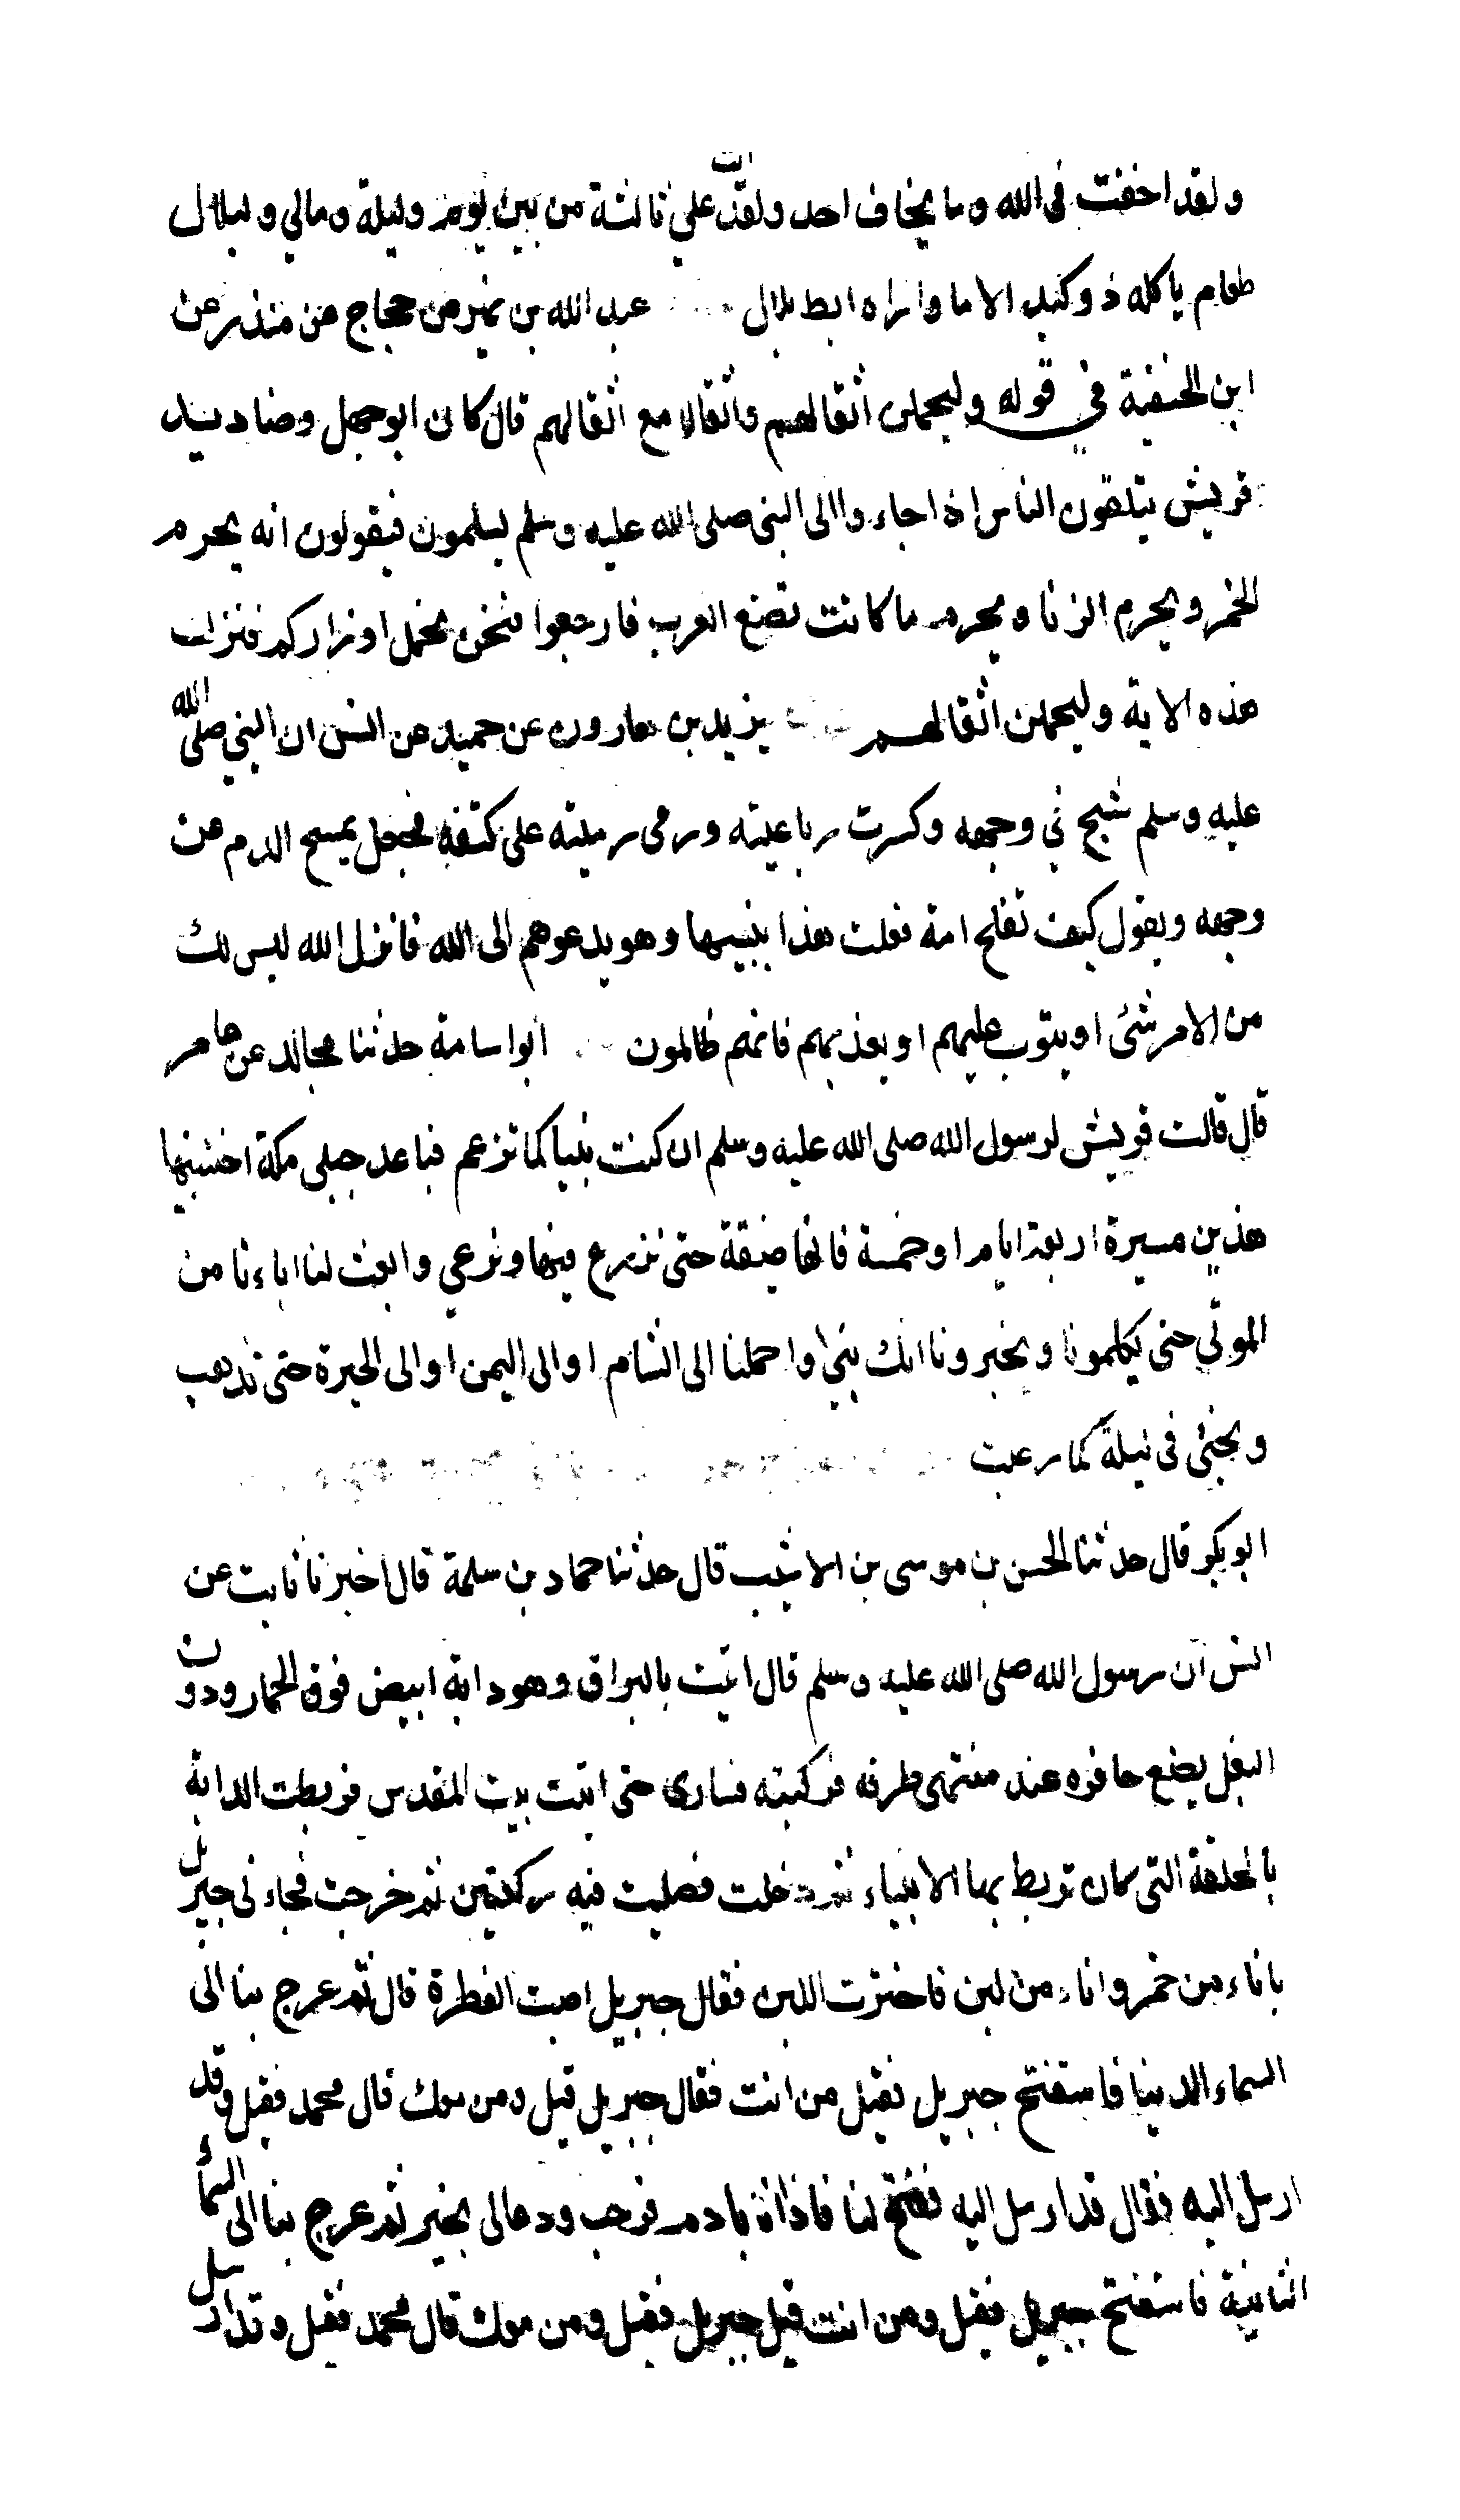 ولقد اخفت في الله وما يخاف احد ولقد اتت علي ثالثة من بين يوم وليلة ومالي ولبلال
طعام ياكله ذو كبد الا ما واراه ابط بلال عبد الله بن نمير عن حجاج عن منذر عن
ابن الحنفية في قوله وليحملن اثقالهم واثقالا مع اثقالهم قال كان ابو جهل وصناديد
قريش يتلقون الناس اذا جاءوا الى النبي صلى الله عليه وسلم ليسلمون فيقولون انه يحرم
الخمر ويحرم الزنا ويحرم ما كانت تصنع العرب فارجعوا فنحن نحمل اوزاركم فنزلت
هذه الاية وليحملن اثقالهم يزيد بن هارون عن حميد عن انس ان النبي صلى الله
عليه وسلم شج في وجهه وكسرت رباعيته ورمى رمية على كتفه فجعل يمسح الدم عن
وجهه ويقول كيف تفلح امة فعلت هذا بنبيها وهو يدعوهم الى الله فانزل الله ليس لك
من الامر شئ او يتوب عليهم او يعذبهم فانهم ظالمون ابو اسامة حدثنا مجالد عن عامر
قال قالت قريش لرسول الله صلى الله عليه وسلم ان كنت نبيا كما تزعم فباعد جبلي مكة اخشبيها
هذين مسيرة اربعة ايام او خمسة فانها ضيقة حتى نزرع فيها ونرعي وابعث لنا اباءنا من
الموتي حتى يكلمونا ويخبرونا انك نبي او احملنا الى الشام او الى اليمن او الى الحيرة حتى نذهب
ونجئ في ليلة كما زعمت
ابو بكر قال حدثنا الحسن بن موسى بن الاشيب قال حدثنا حماد بن سلمة قال اخبرنا ثابت عن
انس ان رسول الله صلى الله عليه وسلم قال اتيت بالبراق وهو دابة ابيض فوق الحمار ودون
البغل يضع حافره عند منتهى طرفه فركبته فسار بي حتى اتيت بيت المقدس فربطت الدابة
بالحلقة التي كان تربط بها الانبياء ثم دخلت فصليت فيه ركعتين ثم خرجت فجاءني جبريل
باناء من خمر واناء من لبن فاخترت اللبن فقال جبريل اصبت الفطرة قال ثم عرج بنا الى
السماء الدنيا فاستفتح جبريل فقيل من انت فقال جبريل قيل ومن معك قال محمد فقيل وقد
ارسل اليه فقال قد ارسل اليه ففتح لنا فاذا انا بادم فرحب ودعا لي بخير ثم عرج بنا الى السماء
الثانية فاستفتح جبريل فقيل ومن انت قيل جبريل فقيل ومن معك قال محمد فقيل وقد ارسل